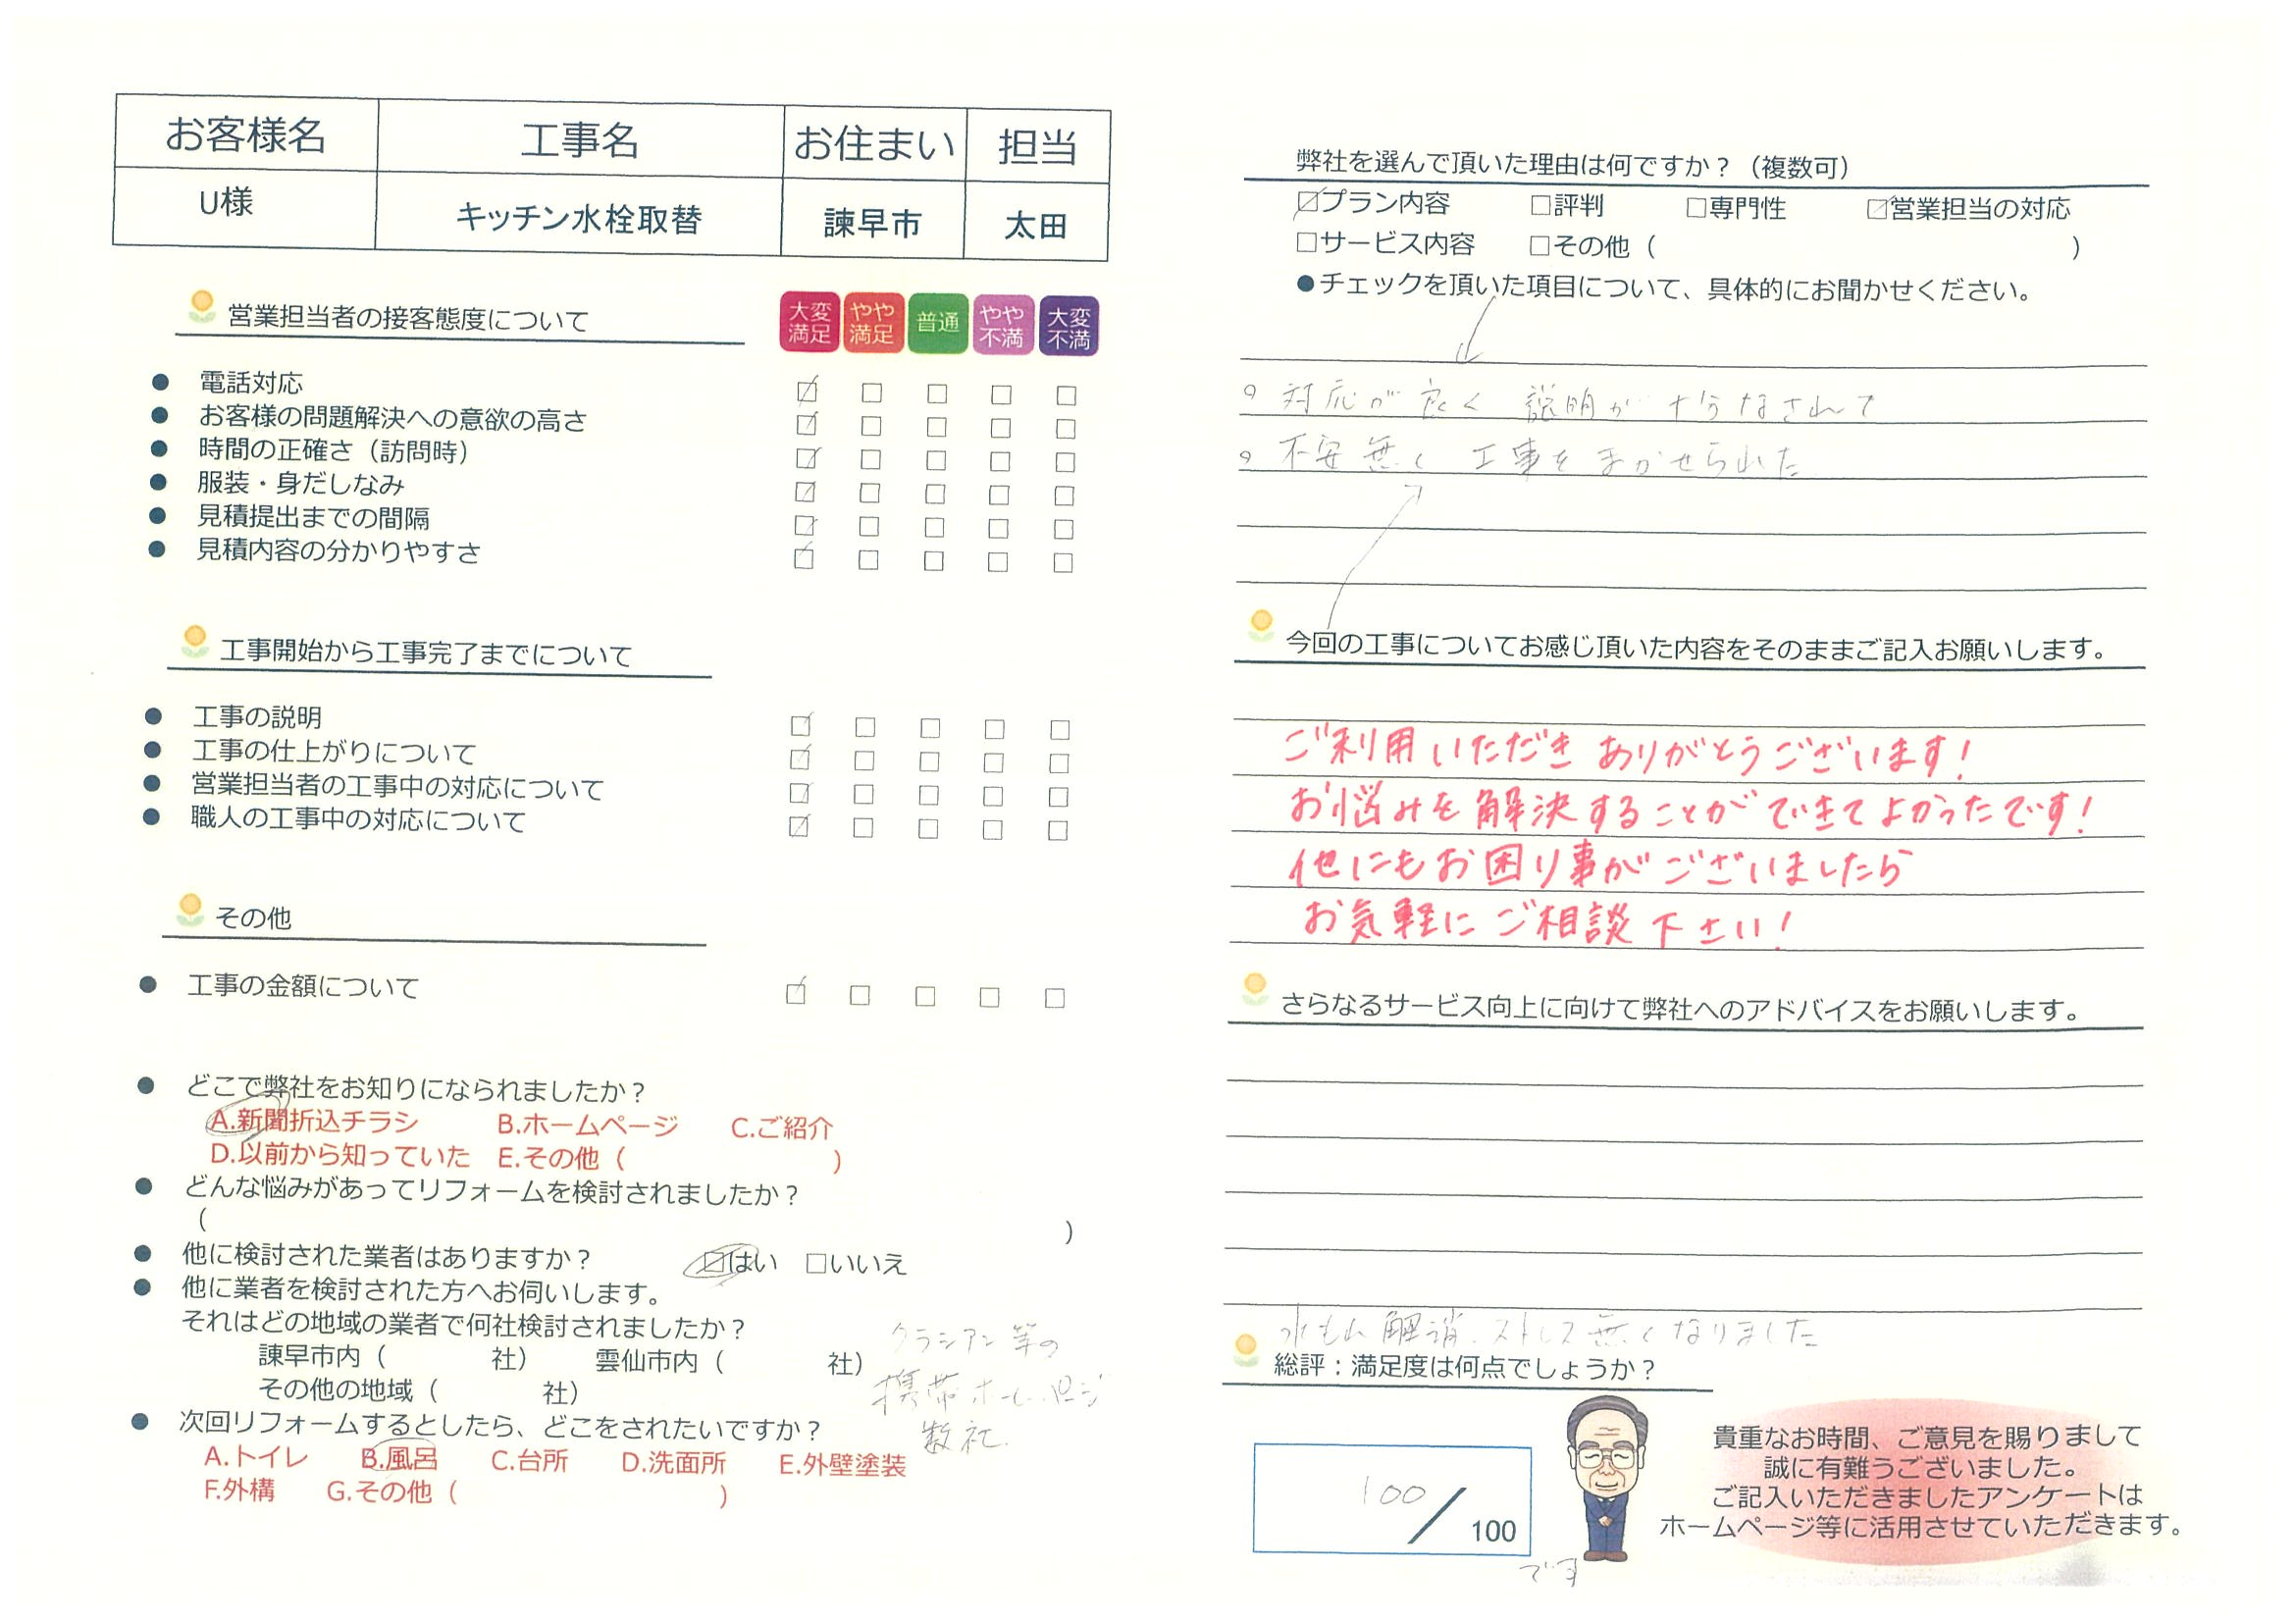 お客様名 工事名 お住まい 担当
U様 キッチン水栓取替 諫早市 太田
営業担当者の接客態度について 大変満足 やや満足 普通 やや不満 大変不満
● 電話対応 ☑ □ □ □ □
● お客様の問題解決への意欲の高さ ☑ □ □ □ □
● 時間の正確さ（訪問時） ☑ □ □ □ □
● 服装・身だしなみ ☑ □ □ □ □
● 見積提出までの間隔 ☑ □ □ □ □
● 見積内容の分かりやすさ ☑ □ □ □ □
工事開始から工事完了までについて
● 工事の説明 ☑ □ □ □ □
● 工事の仕上がりについて ☑ □ □ □ □
● 営業担当者の工事中の対応について ☑ □ □ □ □
● 職人の工事中の対応について ☑ □ □ □ □
その他
● 工事の金額について ☑ □ □ □ □
● どこで弊社をお知りになられましたか？
A.新聞折込チラシ B.ホームページ C.ご紹介
D.以前から知っていた E.その他（ ）
● どんな悩みがあってリフォームを検討されましたか？
（ ）
● 他に検討された業者はありますか？ ☑はい □いいえ
● 他に業者を検討された方へお伺いします。
それはどの地域の業者で何社検討されましたか？
諫早市内（ 社） 雲仙市内（ 社）
その他の地域（ 社）
クラシアン等の
携帯ホームページ
数社.
● 次回リフォームするとしたら、どこをされたいですか？
A.トイレ B.風呂 C.台所 D.洗面所 E.外壁塗装
F.外構 G.その他（ ）
弊社を選んで頂いた理由は何ですか？（複数可）
☑プラン内容 □評判 □専門性 ☑営業担当の対応
□サービス内容 □その他（ ）
●チェックを頂いた項目について、具体的にお聞かせください。
○ 対応が良く 説明が十分なされて
○ 不安無く 工事をまかせられた
今回の工事についてお感じ頂いた内容をそのままご記入お願いします。
ご利用いただき ありがとうございます！
お悩みを解決することができてよかったです！
他にもお困り事がございましたら
お気軽にご相談下さい！
さらなるサービス向上に向けて弊社へのアドバイスをお願いします。
水もれ解消.ストレス無くなりました
総評：満足度は何点でしょうか？
100／100
です
貴重なお時間、ご意見を賜りまして
誠に有難うございました。
ご記入いただきましたアンケートは
ホームページ等に活用させていただきます。